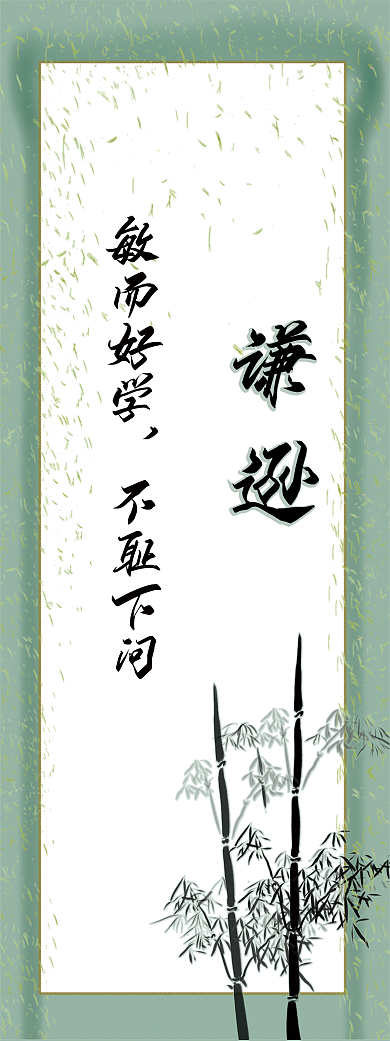 谦逊
敏而好学，不耻下问